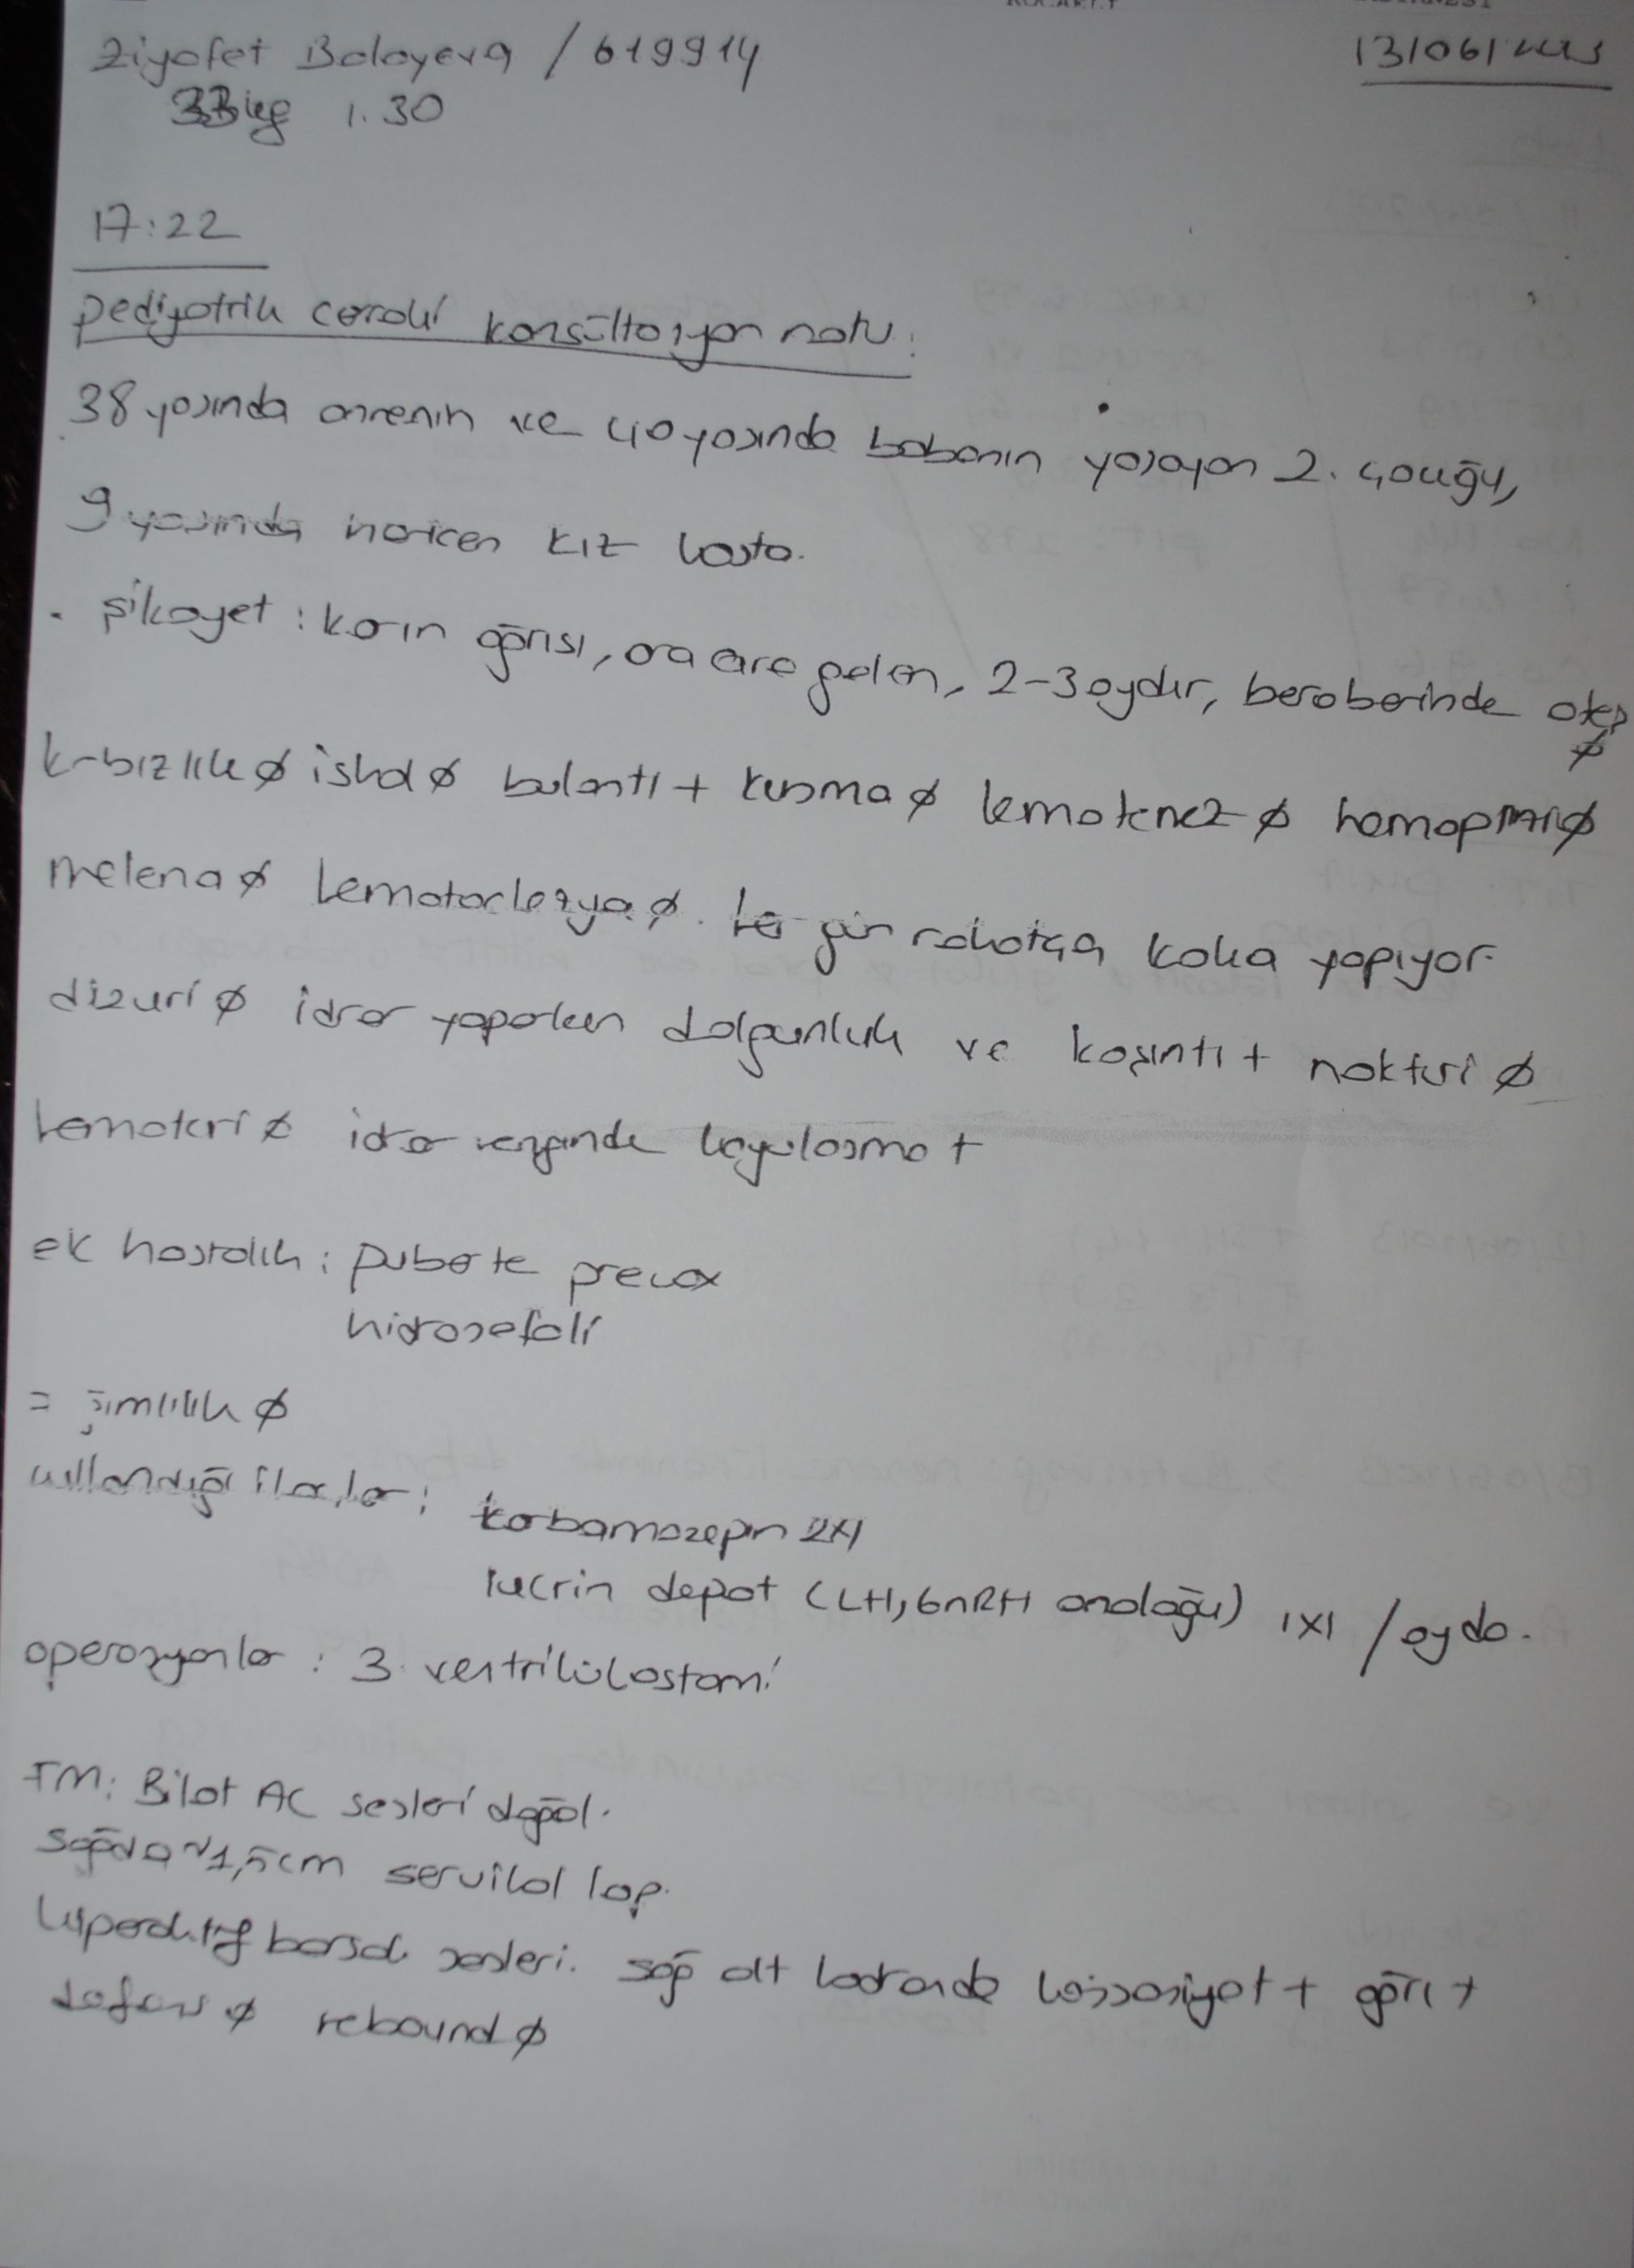 Ziyafet Balayeva / 619914 13/06/2013
33 kg 1.30
17:22
pediyatrik cerrahi konsültasyon notu:
38 yaşında annenin ve 40 yaşında babanın yaşayan 2. çocuğu,
9 yaşında haricen kız hasta.
. şikayet: karın ağrısı, ara ara gelen, 2-3 aydır, beraberinde ateş ø
kabızlık ø ishal ø bulantı + kusma ø hematemez ø hemoptizi ø
melena ø hematochezya ø. her gün rahatça kaka yapıyor.
dizuri ø idrar yaparken dolgunluk ve kaşıntı + nokturi ø
hematuri ø idrar renginde koyulaşma +
ek hastalık: puberte precox
hidrosefali
= ø
kullandığı ilaçlar: karbamazepin 2x1
lucrin depot (LH, GnRH analoğu) 1x1 / ayda.
operasyonlar: 3. ventrikülostomi
FM: Bilat AC sesleri doğal.
Sağda ~1,5cm servikal lap.
hiperaktif barsak sesleri. sağ alt kadranda hassasiyet + ağrı +
defans ø rebound ø